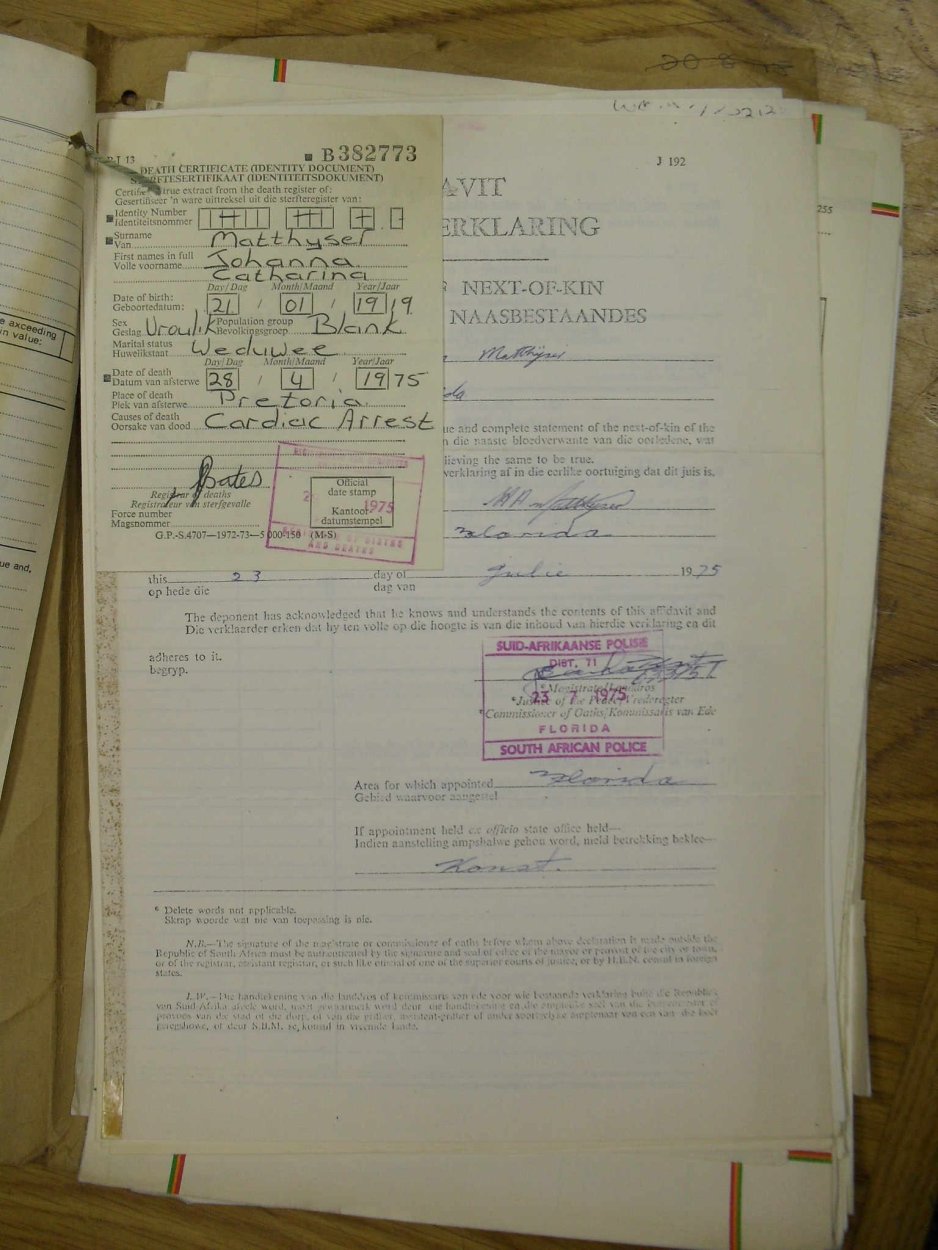 B.I 13
B382773
DEATH CERTIFICATE (IDENTITY DOCUMENT)
STERFTESERTIFIKAAT (IDENTITEITSDOKUMENT)
Certified true extract from the death register of:
Gesertifiseer 'n ware uittreksel uit die sterfteregister van:
Identity Number
Identiteitsnommer
Surname
Van Matthyser
First names in full Johanna
Volle voorname Catharina
Day/Dag Month/Maand Year/Jaar
Date of birth:
Geboortedatum: 21 / 01 / 1919
Sex Population group
Geslag Vroulik Bevolkingsgroep Blank
Marital status
Huwelikstaat Weduwee
Day/Dag Month/Maand Year/Jaar
Date of death
Datum van afsterwe 28 / 4 / 1975
Place of death
Plek van afsterwe Pretoria
Causes of death
Oorsake van dood Cardiac Arrest
Bates
Registrar of deaths
Registrateur van sterfgevalle
Force number
Magsnommer
Official
date stamp
1975
Kantoor-
datumstempel
OF BIRTHS
AND DEATHS
G.P.-S.4707—1972-73—5 000-150 (M-S)
J 192
AVIT
ERKLARING
NEXT-OF-KIN
NAASBESTAANDES
Matthyser
ue and complete statement of the next-of-kin of the
n die naaste bloedverwante van die oorledene, wat
lieving the same to be true.
verklaring af in die eerlike oortuiging dat dit juis is.
Florida
this 23 day of Julie 1975
op hede die dag van
The deponent has acknowledged that he knows and understands the contents of this affidavit and
Die verklaarder erken dat hy ten volle op die hoogte is van die inhoud van hierdie verklaring en dit
adheres to it.
begryp.
SUID-AFRIKAANSE POLISIE
DIST. 71
*Magistrate/Landdros
23 7 1975
*Justice of the Peace/Vrederegter
*Commissioner of Oaths/Kommissaris van Ede
FLORIDA
SOUTH AFRICAN POLICE
Area for which appointed Florida
Gebied waarvoor aangestel
If appointment held ex officio state office held—
Indien aanstelling ampshalwe gehou word, meld betrekking beklee—
Konst.
* Delete words not applicable.
Skrap woorde wat nie van toepassing is nie.
N.B.—The signature of the magistrate or commissioner of oaths before whom above declaration is made outside the
Republic of South Africa must be authenticated by the signature and seal of office of the mayor or provost of the city or town,
or of the registrar, assistant registrar, or such like official of one of the superior courts of justice, or by H.B.N. consul in foreign
states.
L.W.—Die handtekening van die landdros of kommissaris van ede voor wie bestaande verklaring buite die Republiek
van Suid-Afrika word,
255
e exceeding
n value:
ue and,